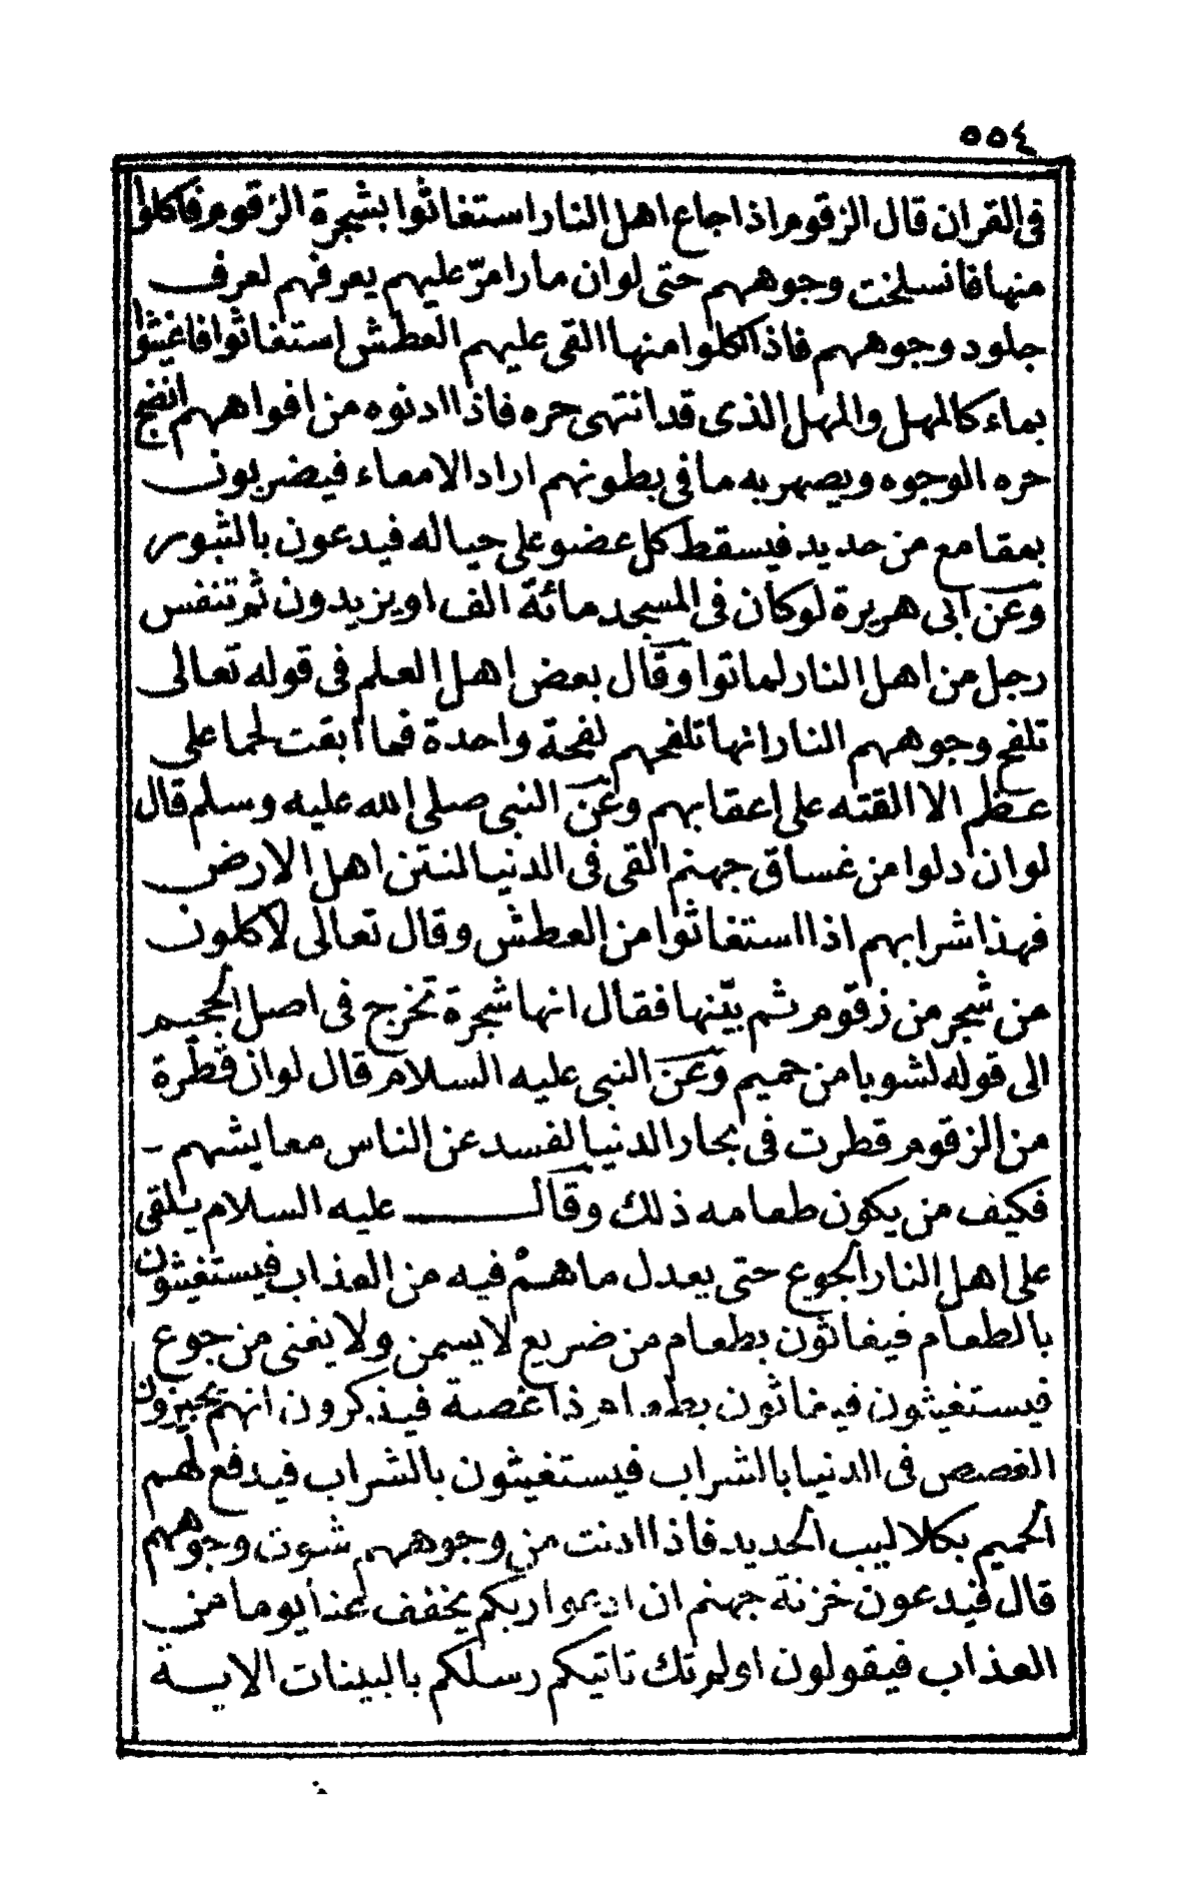 ٥٥٤
فى القران قال الزقوم اذا جاع اهل النار استغاثوا بشجرة الزقوم فاكلوا
منها فانسلخت وجوههم حتى لوان مارا مرّ عليهم يعرفهم لعرف
جلود وجوههم فاذا اكلوا منها القى عليهم العطش استغاثوا فاغيثوا
بماء كالمهل والمهل الذى قد انتهى حره فاذا ادنوه من افواههم انضج
حره الوجوه ويصهر به ما فى بطونهم اراد الامعاء فيضربون
بمقامع من حديد فيسقط كل عضو على حياله فيدعون بالثبور
وعن ابى هريرة لوكان فى المسجد مائة الف اويزيدون ثم تنفس
رجل من اهل النار لماتوا وقال بعض اهل العلم فى قوله تعالى
تلفح وجوههم النار انها تلفحهم لفحة واحدة فما ابقت لحما على
عظم الا القته على اعقابهم وعن النبى صلى الله عليه وسلم قال
لوان دلوا من غساق جهنم القى فى الدنيا لنتن اهل الارض
فهذا شرابهم اذا استغاثوا من العطش وقال تعالى لاكلون
من شجر من زقوم ثم بيّنها فقال انها شجرة تخرج فى اصل الجحيم
الى قوله لشوبا من حميم وعن النبى عليه السلام قال لوان قطرة
من الزقوم قطرت فى بحار الدنيا لفسد عن الناس معايشهم -
فكيف من يكون طعامه ذلك وقال عليه السلام يلقى
على اهل النار الجوع حتى يعدل ما همْ فيه من العذاب فيستغيثون
بالطعام فيغاثون بطعام من ضريع لايسمن ولا يغنى من جوع
فيستغيثون فيغاثون بطعام ذا غصة فيذكرون انهم يجيزون
الغصص فى الدنيا بالشراب فيستغيثون بالشراب فيدفع لهم
الحميم بكلاليب الحديد فاذا ادنت من وجوههم شوت وجوههم
قال فيدعون خزنة جهنم ان ادعوا ربكم يخفف عنا يوما من
العذاب فيقولون اولم تك تاتيكم رسلكم بالبينات الاية